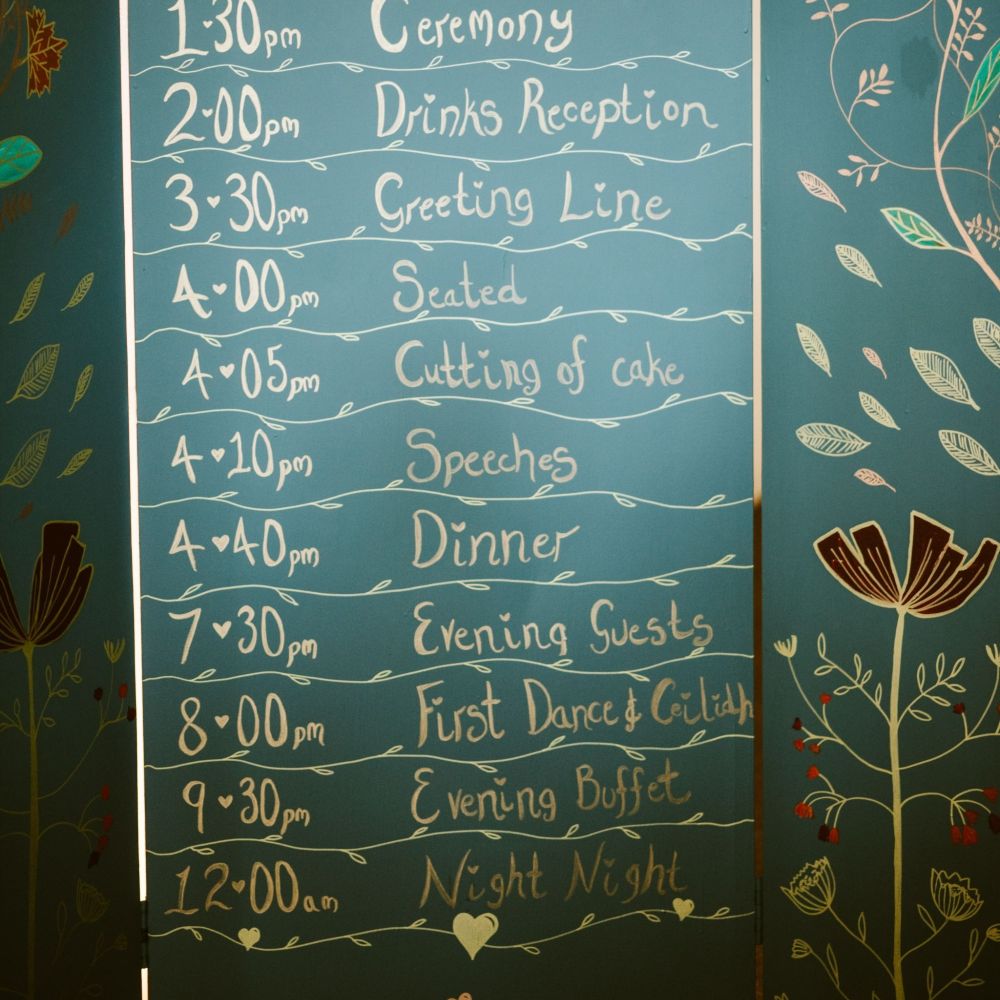 1·30pm Ceremony
2·00pm Drinks Reception
3·30pm Greeting Line
4·00pm Seated
4·05pm Cutting of cake
4·10pm Speeches
4·40pm Dinner
7·30pm Evening Guests
8·00pm First Dance & Ceilidh
9·30pm Evening Buffet
12·00am Night Night